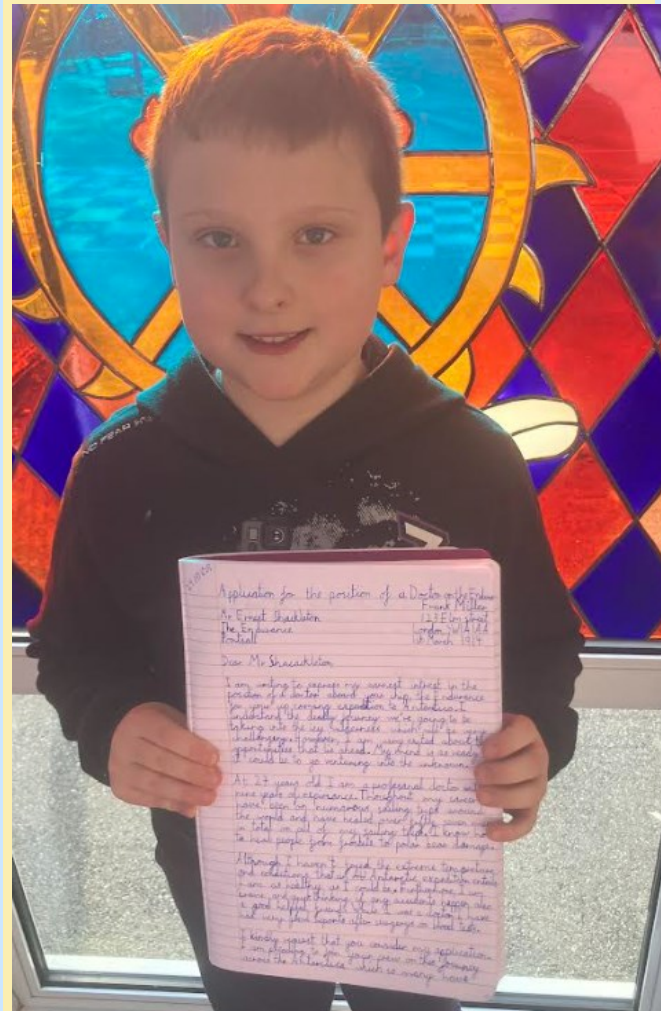 NO FEAR
Application for the position of a Doctor on the Endura
Frank Miller
Mr Ernest Shackleton 123 Elm street
The Endurance London SW1A 1AA
Portsall 1st March 1914
Dear Mr Shacackleton,
I am writing to express my earnest interest in the
position of a doctor aboard your ship, the Endurance
for your up coming expedition to Antarctica. I
understand the deadly journey we're going to be
taking into the icy vastness which will be very
challenging. However, I am very excited about the
opportunities that lie ahead. My mind is as ready
it could be to go venturing into the unknown.
At 27 years old I am a professional doctor with
nine years of Throughout my career
have been on numerous sailing trips around
the world and have healed over fifty
in total on all of my sailing trips. I know how
to heal people from frostbite to polar bear damages
Although I haven't faced the extreme temperatures
and conditions that an Antarctic expedition entails
I am as healthy as I could be. Furthermore, I am
and quick thinking if any accidents happen. Also
a good helpful friend. While I was a doctor, I have
had very good reports after surgerys or check ups.
I kindly request that you consider my application.
I am to join your crew on this journey
across the Antarctica which so many have